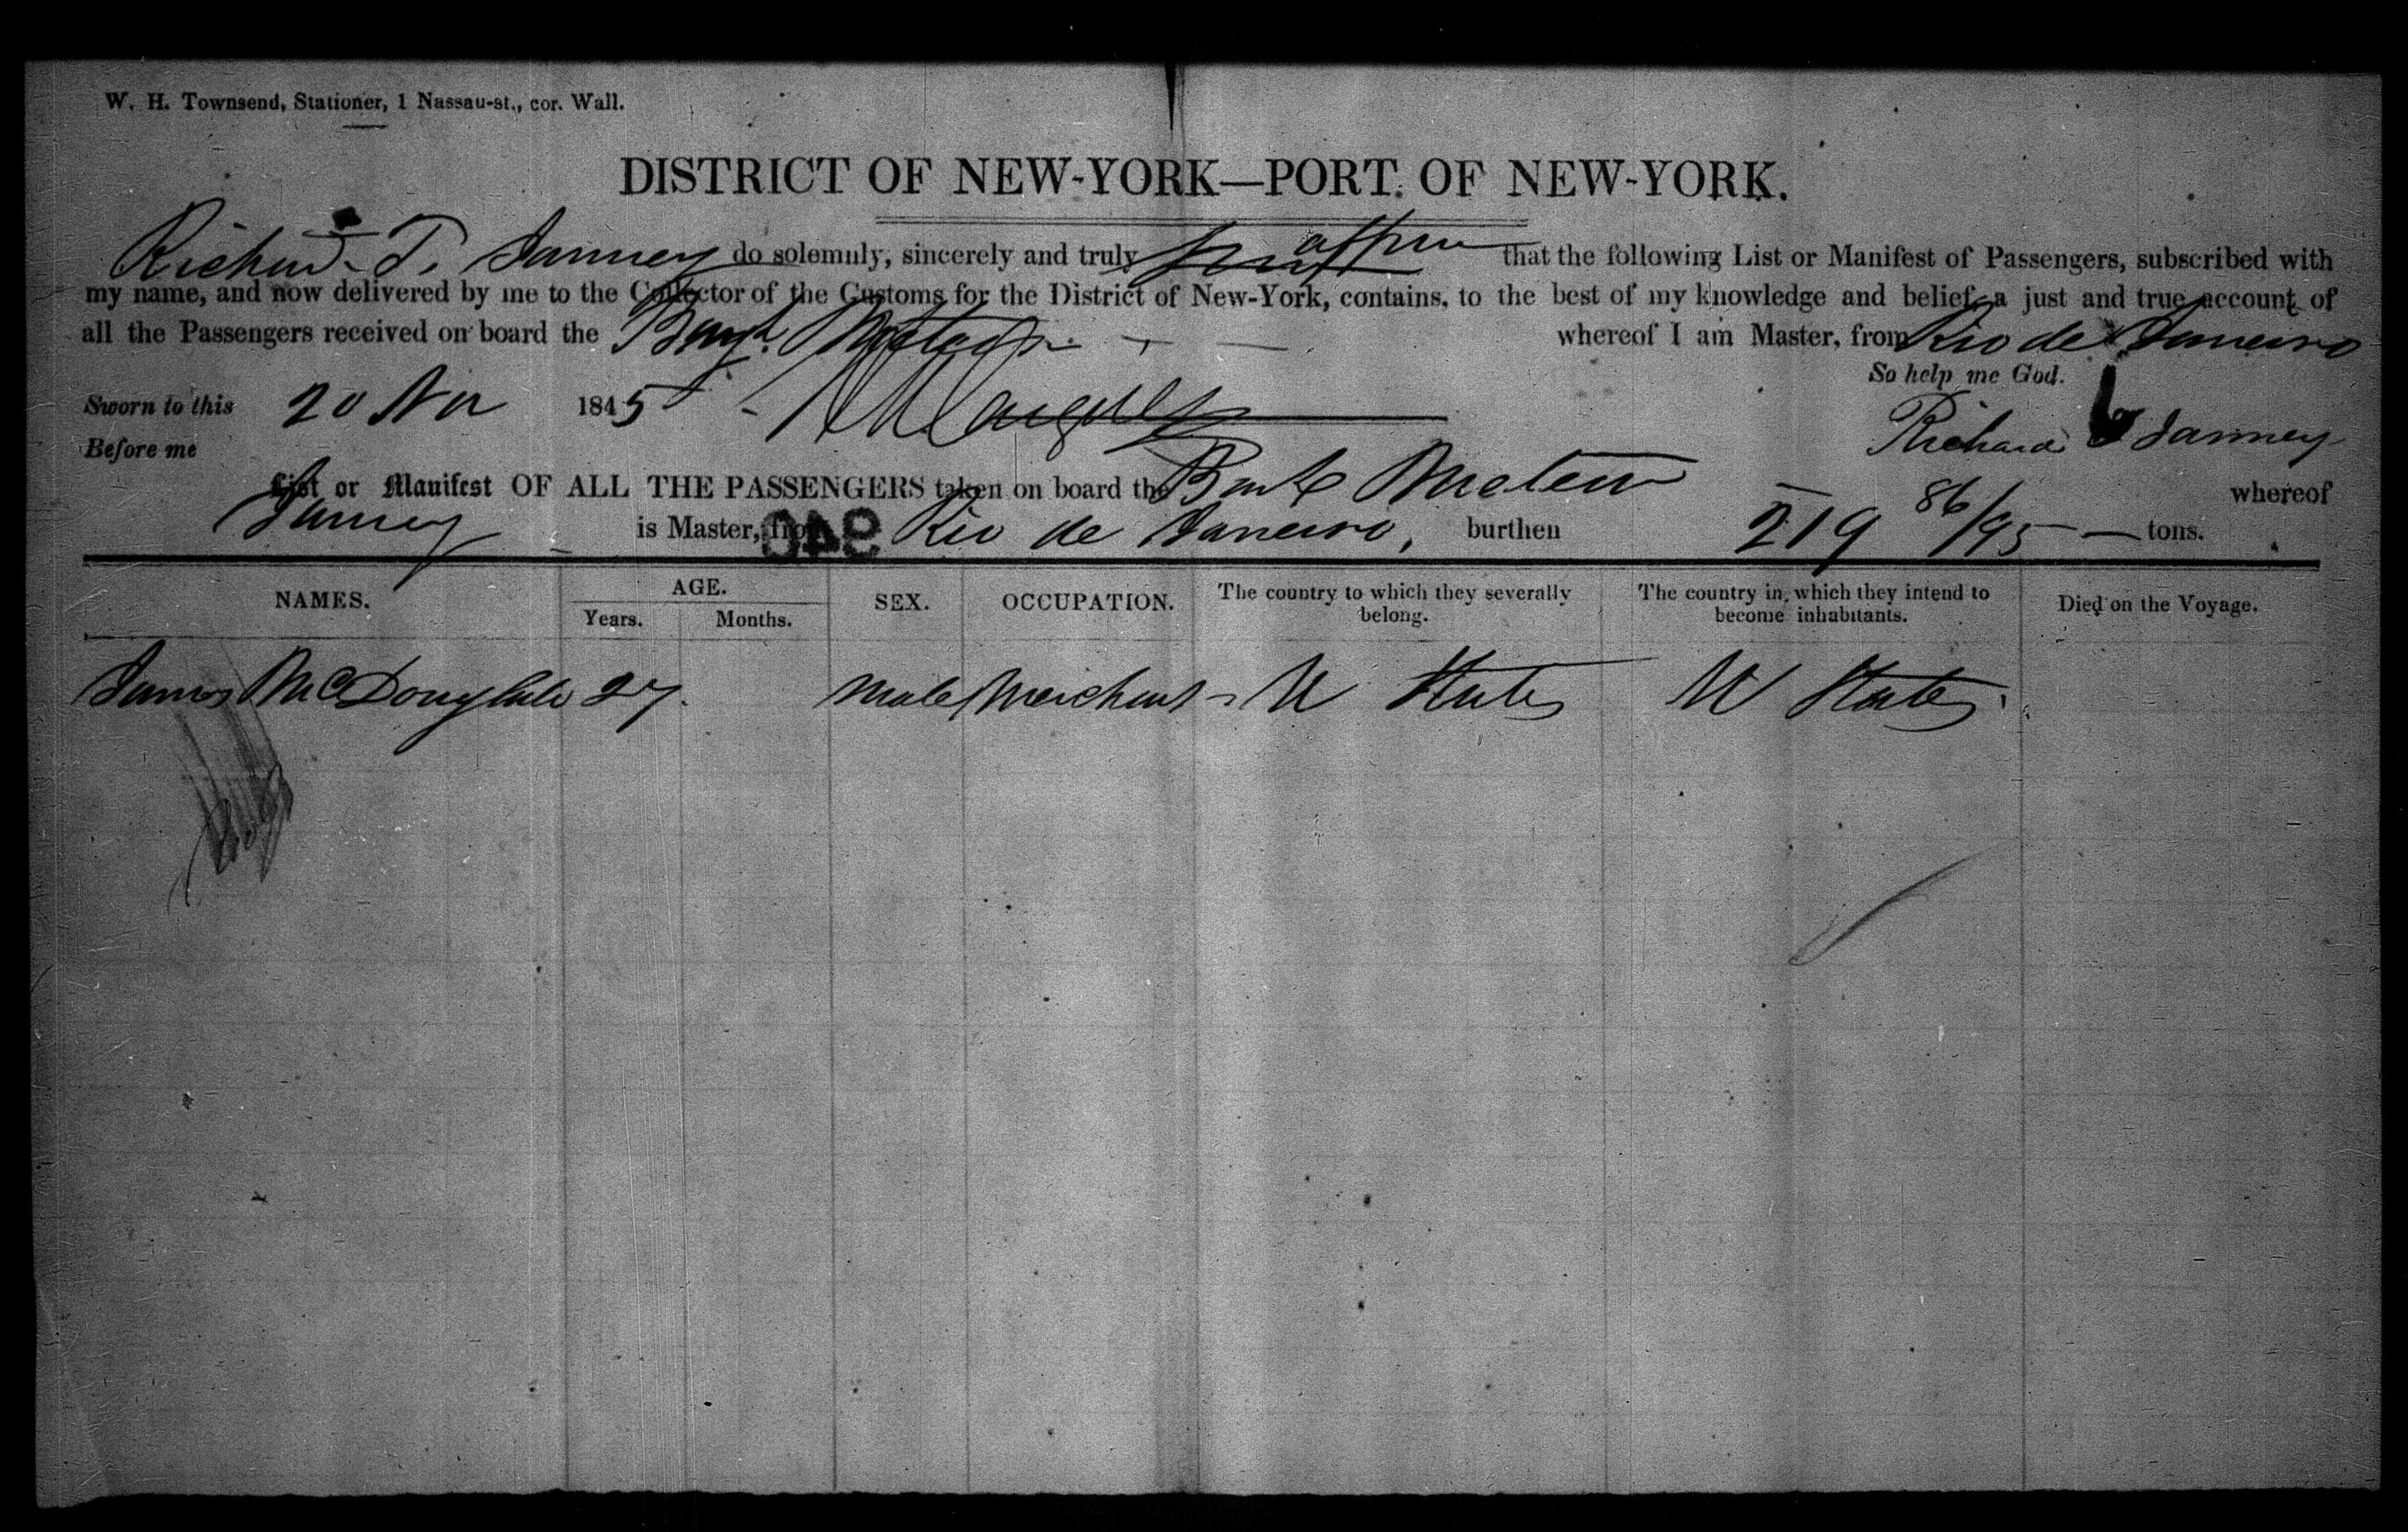 W. H. Townsend, Stationer, 1 Nassau-st., cor. Wall.
DISTRICT OF NEW-YORK—PORT OF NEW-YORK.
Richard T. Janney do solemnly, sincerely and truly affirm that the following List or Manifest of Passengers, subscribed with
my name, and now delivered by me to the Collector of the Customs for the District of New-York, contains, to the best of my knowledge and belief, a just and true account of
all the Passengers received on board the Bark whereof I am Master, from Rio de Janeiro
So help me God.
Sworn to this 20 Nov 1845
Richard Janney
Before me
List or Manifest OF ALL THE PASSENGERS taken on board the Bark whereof
Janney is Master, from Rio de Janeiro, burthen 219 86/95 tons.
940
NAMES. AGE. SEX. OCCUPATION. The country to which they severally belong. The country in which they intend to become inhabitants. Died on the Voyage.
Years. Months.
James 27. Male Merchant U States U States